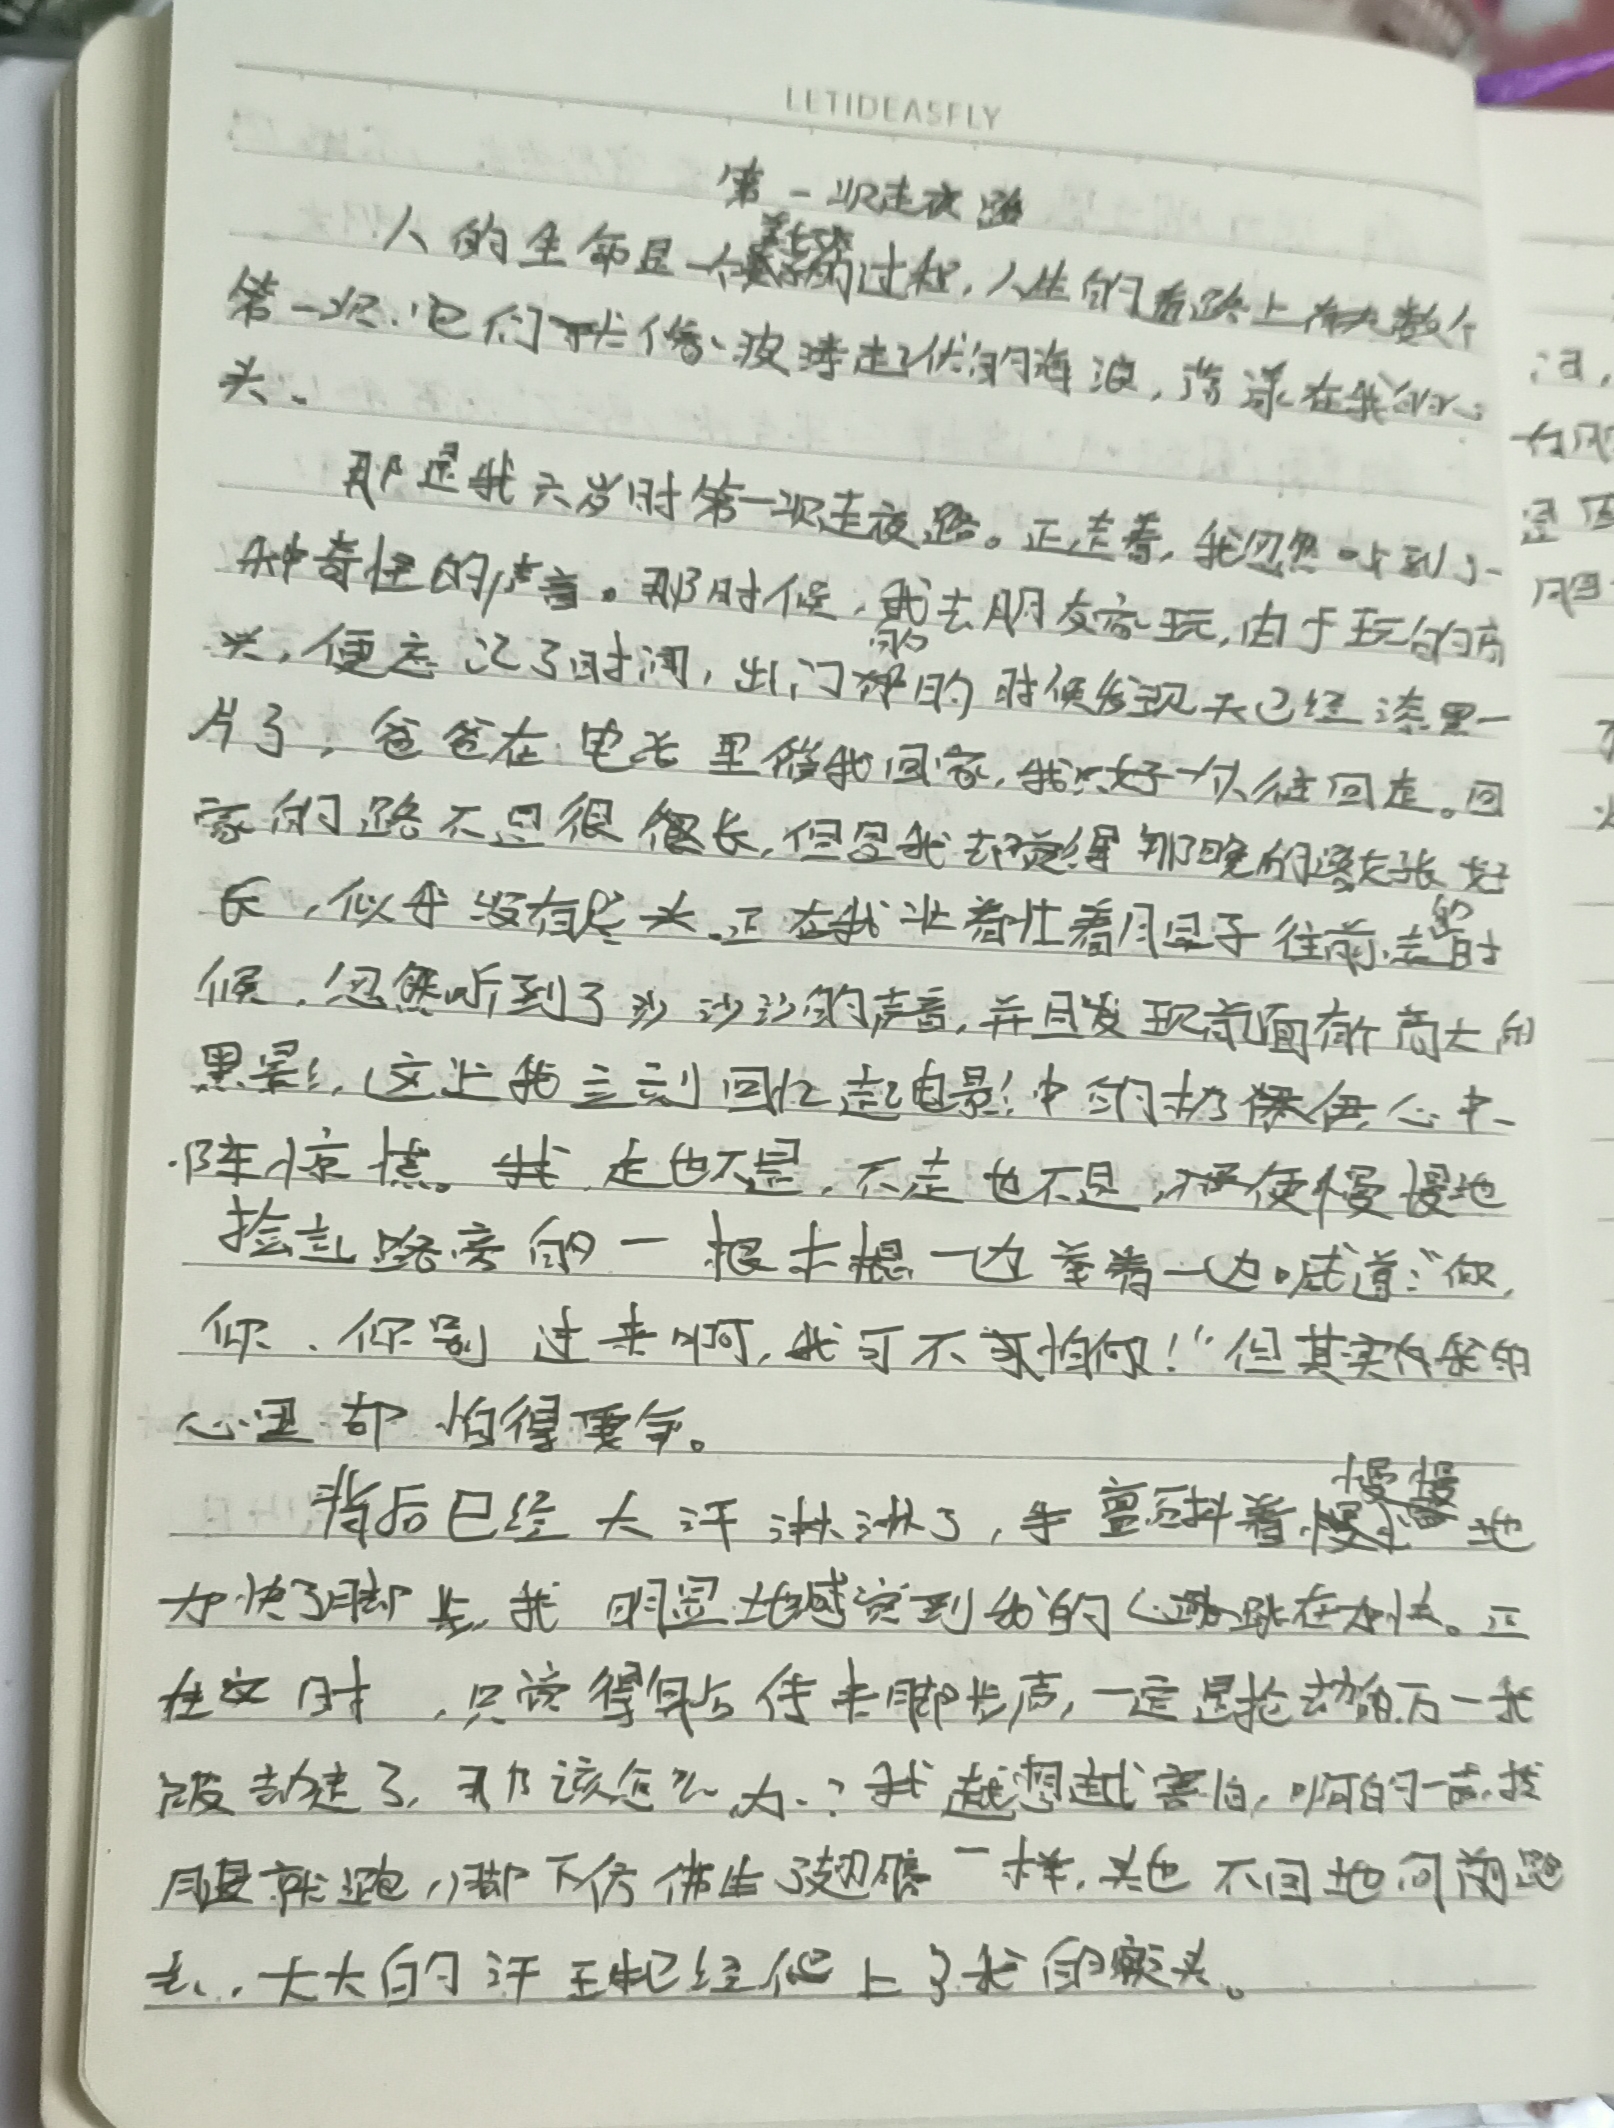 LETIDEASFLY
第一次走夜路
人的生命是一个美好的过程，人生的道路上有无数个
第一次，它们就像波涛起伏的海浪，荡漾在我的心
头。
那是我六岁时第一次走夜路。正走着，我忽然听到了一
种奇怪的声音。那时候，我去朋友家玩，由于玩的高
兴，便忘记了时间，出门的时候发现天已经漆黑一
片了，爸爸在电话里催我回家，我只好一人往回走。回
家的路不是很很长，但是我却觉得那晚的路好长好
长，似乎没有尽头。正在我壮着壮着胆子往前走的时
候，忽然听到了沙沙沙的声音，并且发现前面有个高大的
黑影，这让我立刻回忆起电影中的扔保伞，心中一
阵惊慌。我走也不是，不走也不是，便慢慢地
捡起路旁的一根木棍一边举着一边喊道：“你，
你、你别过来啊，我可不害怕你！”但其实我的
心里却怕得要命。
背后已经大汗淋淋了，手直颤抖着慢慢地
加快了脚步，我明显地感觉到我的心跳在加快。正
在这时，只觉得身后传来脚步声，一定是抢劫的，万一我
被劫走了，那该怎么办？我越想越害怕，啊的一声，拔
腿就跑，脚下仿佛生了翅膀一样，头也不回地向前跑
去，大大的汗珠已经爬上了我的额头。